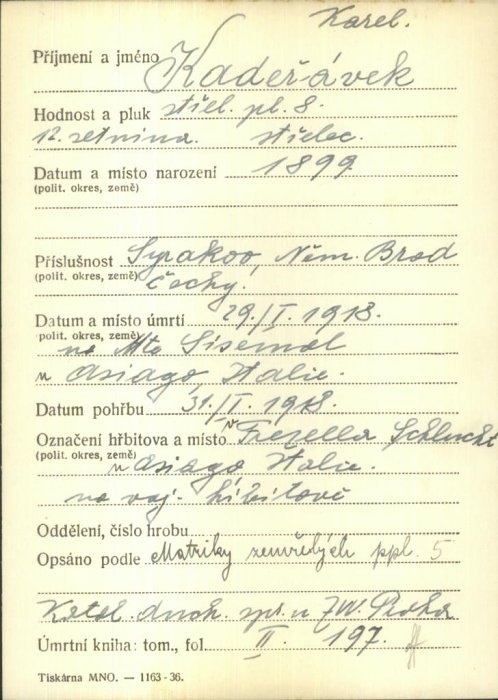 Karel.
Příjmení a jméno Kadeřávek
Hodnost a pluk střel. pl. 8.
12. setnina. střelec.
Datum a místo narození 1899
(polit. okres, země)
Příslušnost Syrakov, Něm. Brod
(polit. okres, země) Čechy.
Datum a místo úmrtí 29./I. 1918.
(polit. okres, země)
na Mte Sisemol
u Asiago, Italie.
Datum pohřbu 31./I. 1918.
Označení hřbitova a místo v Frezella Schlucht
(polit. okres, země)
u Asiago, Italie.
na voj. hřbitově
Oddělení, číslo hrobu
Opsáno podle Matriky zemřelých ppl. 5
Katol. duch. spr. u ZVV. Praha
Úmrtní kniha: tom., fol. II. 197.
Tiskárna MNO. — 1163-36.